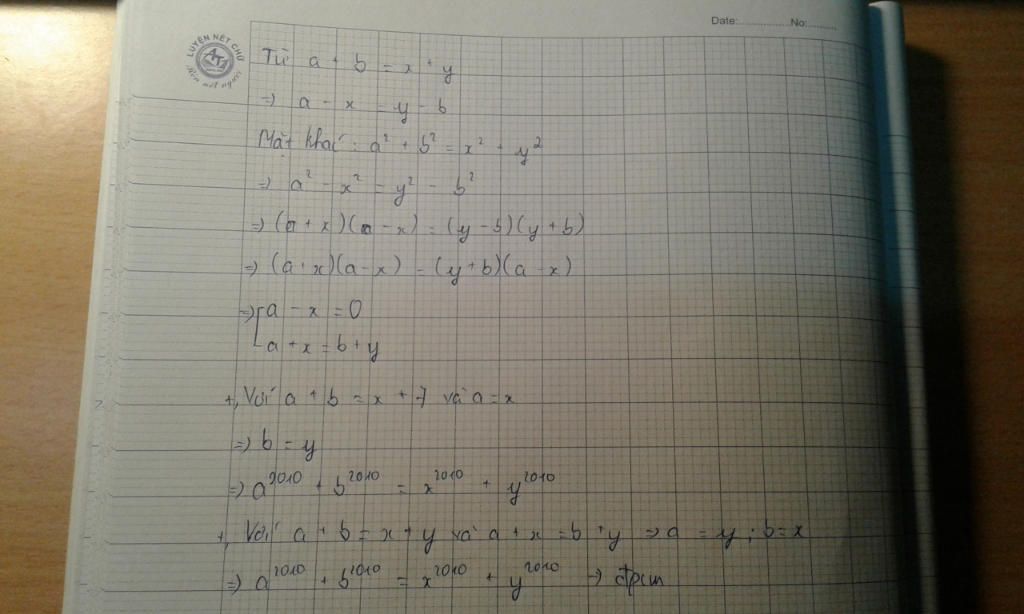 Date: No:
LUYỆN NÉT CHỮ
Rèn nết người
Từ a + b = x + y
=> a - x = y - b
Mặt khác: a² + b² = x² + y²
=> a² - x² = y² - b²
=> (a + x)(a - x) = (y - b)(y + b)
=> (a + x)(a - x) = (y + b)(a - x)
=> [a - x = 0
a + x = b + y
+, Với a + b = x + y và a = x
=> b = y
=> a²⁰¹⁰ + b²⁰¹⁰ = x²⁰¹⁰ + y²⁰¹⁰
+, Với a + b = x + y và a + x = b + y => a = y ; b = x
=> a²⁰¹⁰ + b²⁰¹⁰ = x²⁰¹⁰ + y²⁰¹⁰ -> đpcm